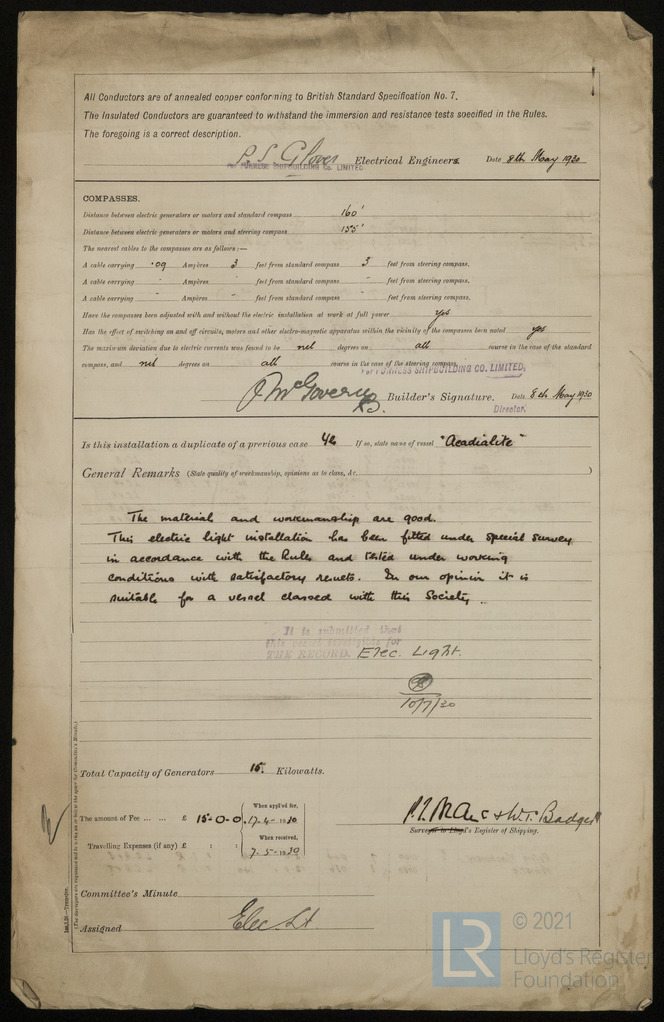 All Conductors are of annealed copper conforming to British Standard Specification No. 7.
The Insulated Conductors are guaranteed to withstand the immersion and resistance tests specified in the Rules.
The foregoing is a correct description.
P.S. Glover Electrical Engineers. Date 8th May 1930
FURNESS SHIPBUILDING CO. LIMITED
COMPASSES.
Distance between electric generators or motors and standard compass 160'
Distance between electric generators or motors and steering compass 155'
The nearest cables to the compasses are as follows:—
A cable carrying .09 Ampères 3 feet from standard compass 3 feet from steering compass.
A cable carrying - Ampères - feet from standard compass - feet from steering compass.
A cable carrying - Ampères - feet from standard compass - feet from steering compass.
Have the compasses been adjusted with and without the electric installation at work at full power yes
Has the effect of switching on and off circuits, motors and other electro-magnetic apparatus within the vicinity of the compasses been noted yes
The maximum deviation due to electric currents was found to be nil degrees on all course in the case of the standard
compass, and nil degrees on all course in the case of the steering compass.
For FURNESS SHIPBUILDING CO. LIMITED,
McGovern Builder's Signature. Date 8th May 1930
Director.
Is this installation a duplicate of a previous case Yes If so, state name of vessel "Acadialite"
General Remarks (State quality of workmanship, opinions as to class, &c. )
The material and workmanship are good.
This electric light installation has been fitted under special survey
in accordance with the Rules and tested under working
conditions with satisfactory results. In our opinion it is
suitable for a vessel classed with this Society.
It is submitted that
this vessel is eligible for
THE RECORD. Elec. Light.
10/7/30
Total Capacity of Generators 15. Kilowatts.
The amount of Fee ... ... £ 15-0-0 When applied for, 17-4-1930
Travelling Expenses (if any) £ : : When received, 7-5-1930
& W.T. Badger
Surveyor to Lloyd's Register of Shipping.
Committee's Minute
Assigned Elec Lt
© 2021
LR Lloyd's Register
Foundation